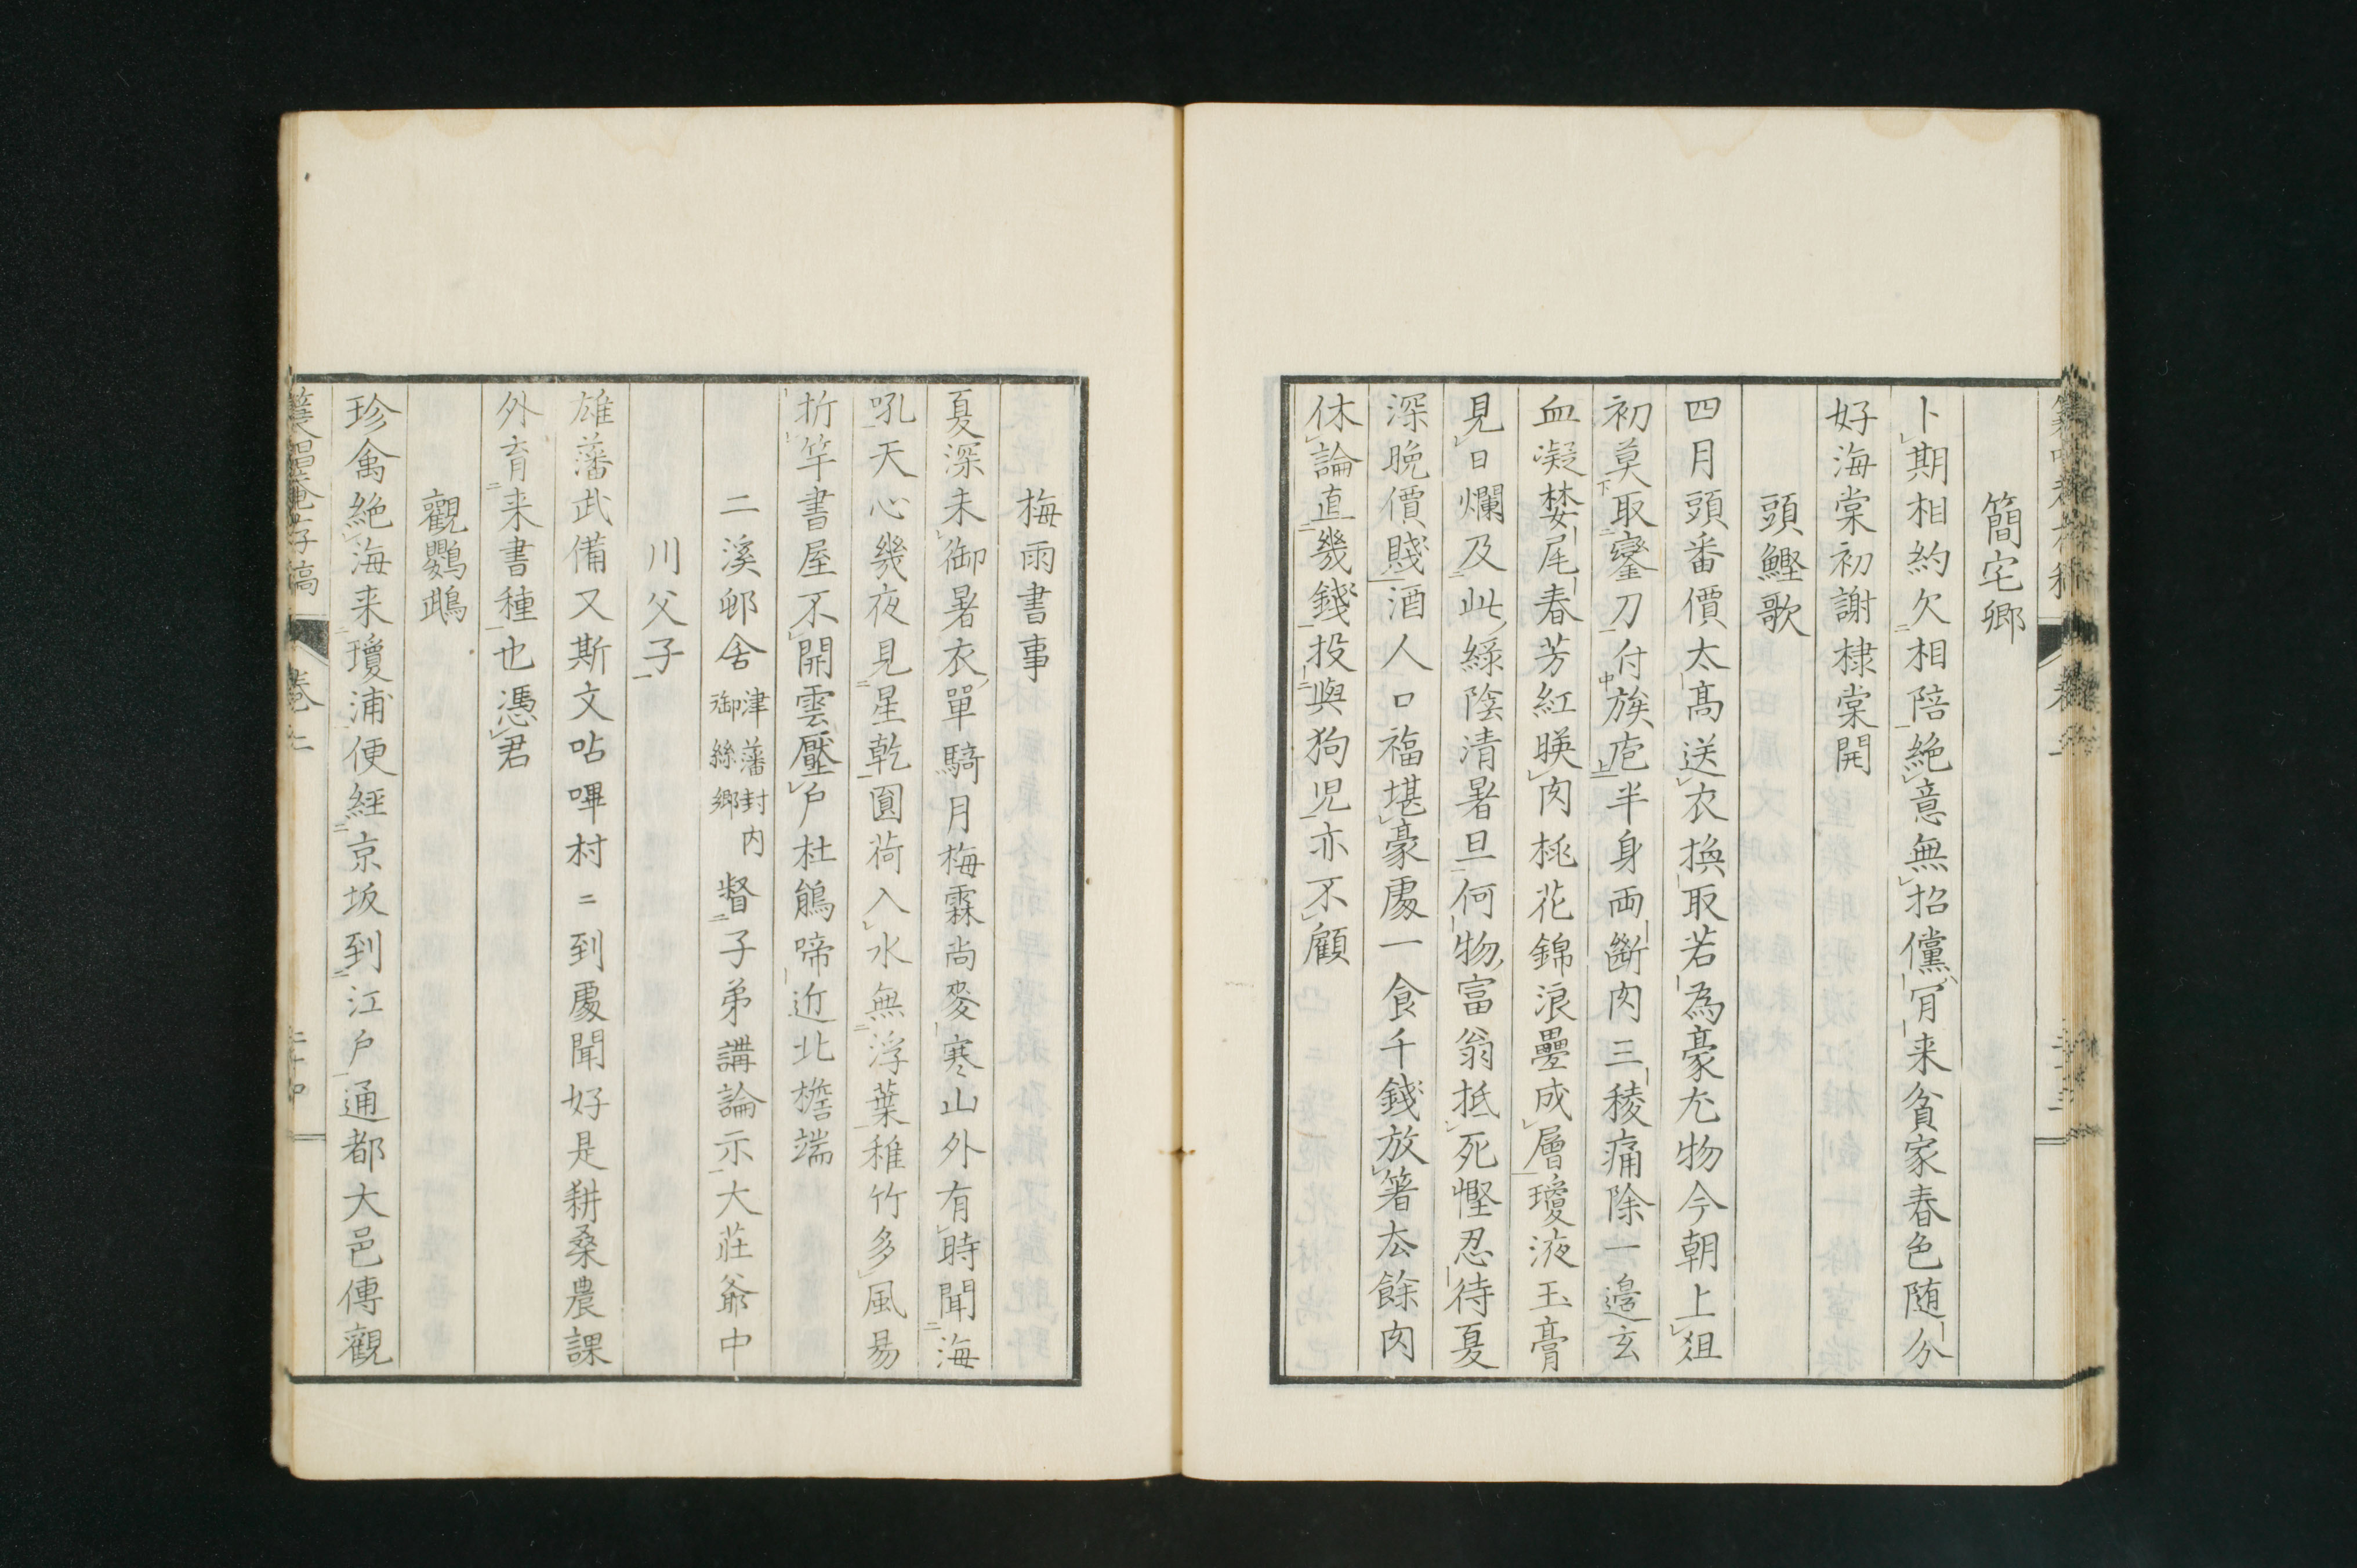 簡宅郷
卜期相約欠相陪絶意無招儻肯来貧家春色随分
好海棠初謝棣棠開
頭鰹歌
四月頭番價太高送衣換取若為豪尤物今朝上俎
初莫取鑾刀付族庖半身両斷肉三稜痛除一邉玄
血凝婪尾春芳紅暎肉桃花錦浪疊成層瓊液玉膏
見日爛及此緑陰清暑旦何物富翁抵死慳忍待夏
深晩價賤酒人口福堪豪處一食千錢放箸去餘肉
休論直幾錢投與狗児亦不顧
梅雨書事
夏深未御暑衣單騎月梅霖尚麥寒山外有時聞海
吼天心幾夜見星乾圓荷入水無浮葉稚竹多風易
折竿書屋不開雲壓戸杜鵑啼近北檐端
二溪邨舎津藩封内御絲郷督子弟講論示大莊爺中
川父子
雄藩武備又斯文呫嗶村〻到處聞好是耕桑農課
外育来書種也憑君
觀鸚鵡
珍禽絶海来瓊浦便経京坂到江戸通都大邑傳觀
存稿 卷